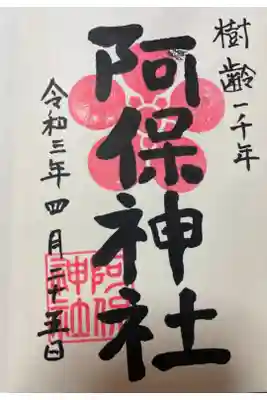 樹齢一千年
阿保神社
令和三年四月二十五日
阿保
神社